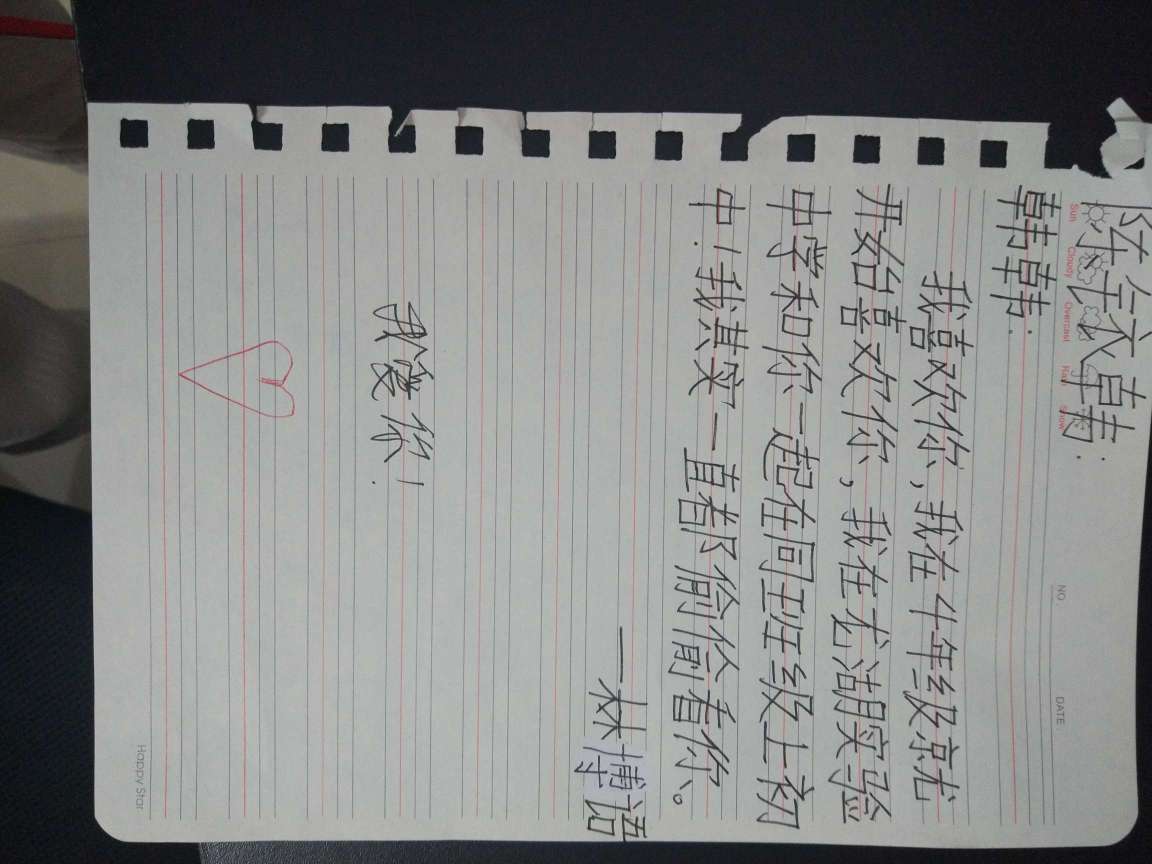 陈钦韩:
Sun Cloudy Overcast Rain Snow
NO.
DATE
韩韩:
我喜欢你,我在4年级就
开始喜欢你,我在尤湖实验
中学和你一起在同班级上初
中!我其实一直都偷偷看你。
—林博语
我爱你!
Happy Star